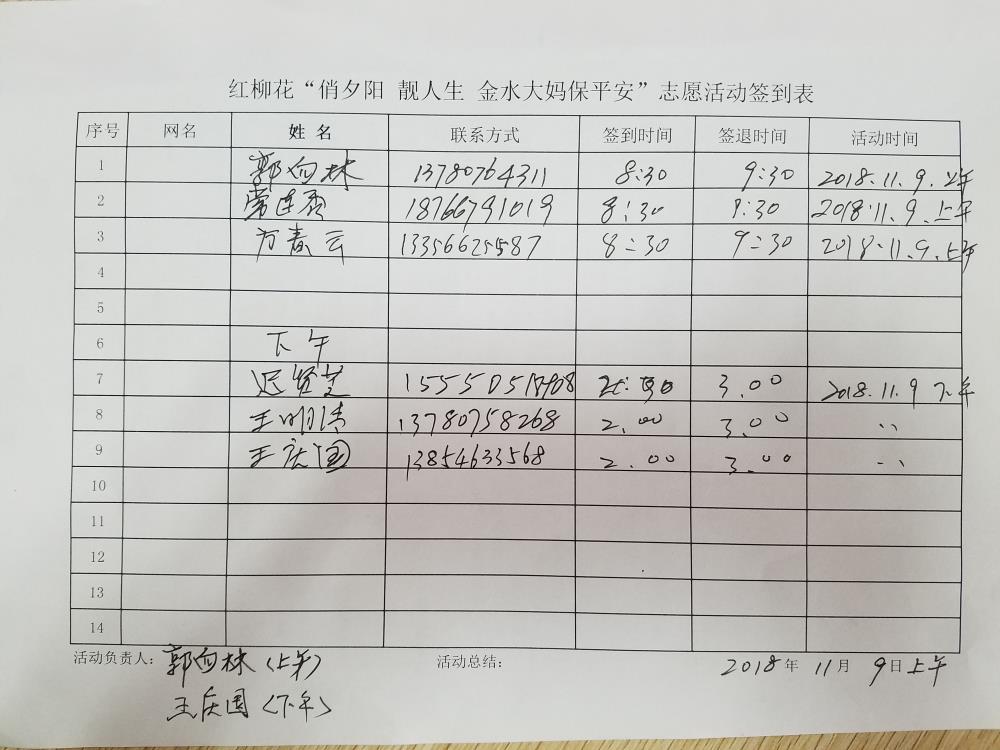 红柳花“俏夕阳 靓人生 金水大妈保平安”志愿活动签到表
序号 网名 姓名 联系方式 签到时间 签退时间 活动时间
1 郭向林 13780764311 8:30 9:30 2018.11.9.上午
2 常连香 18766791019 8:30 9:30 2018.11.9.上午
3 方春云 13356625587 8:30 9:30 2018.11.9.上午
4
5
6 下午
7 迟贤芝 3.00 2018.11.9 下午
8 王明清 13780758268 2.00 3.00 、、
9 王庆国 13854633568 2.00 3.00 、、
10
11
12
13
14
活动负责人：郭向林（上午） 活动总结： 2018年 11月 9日上午
王庆国（下午）